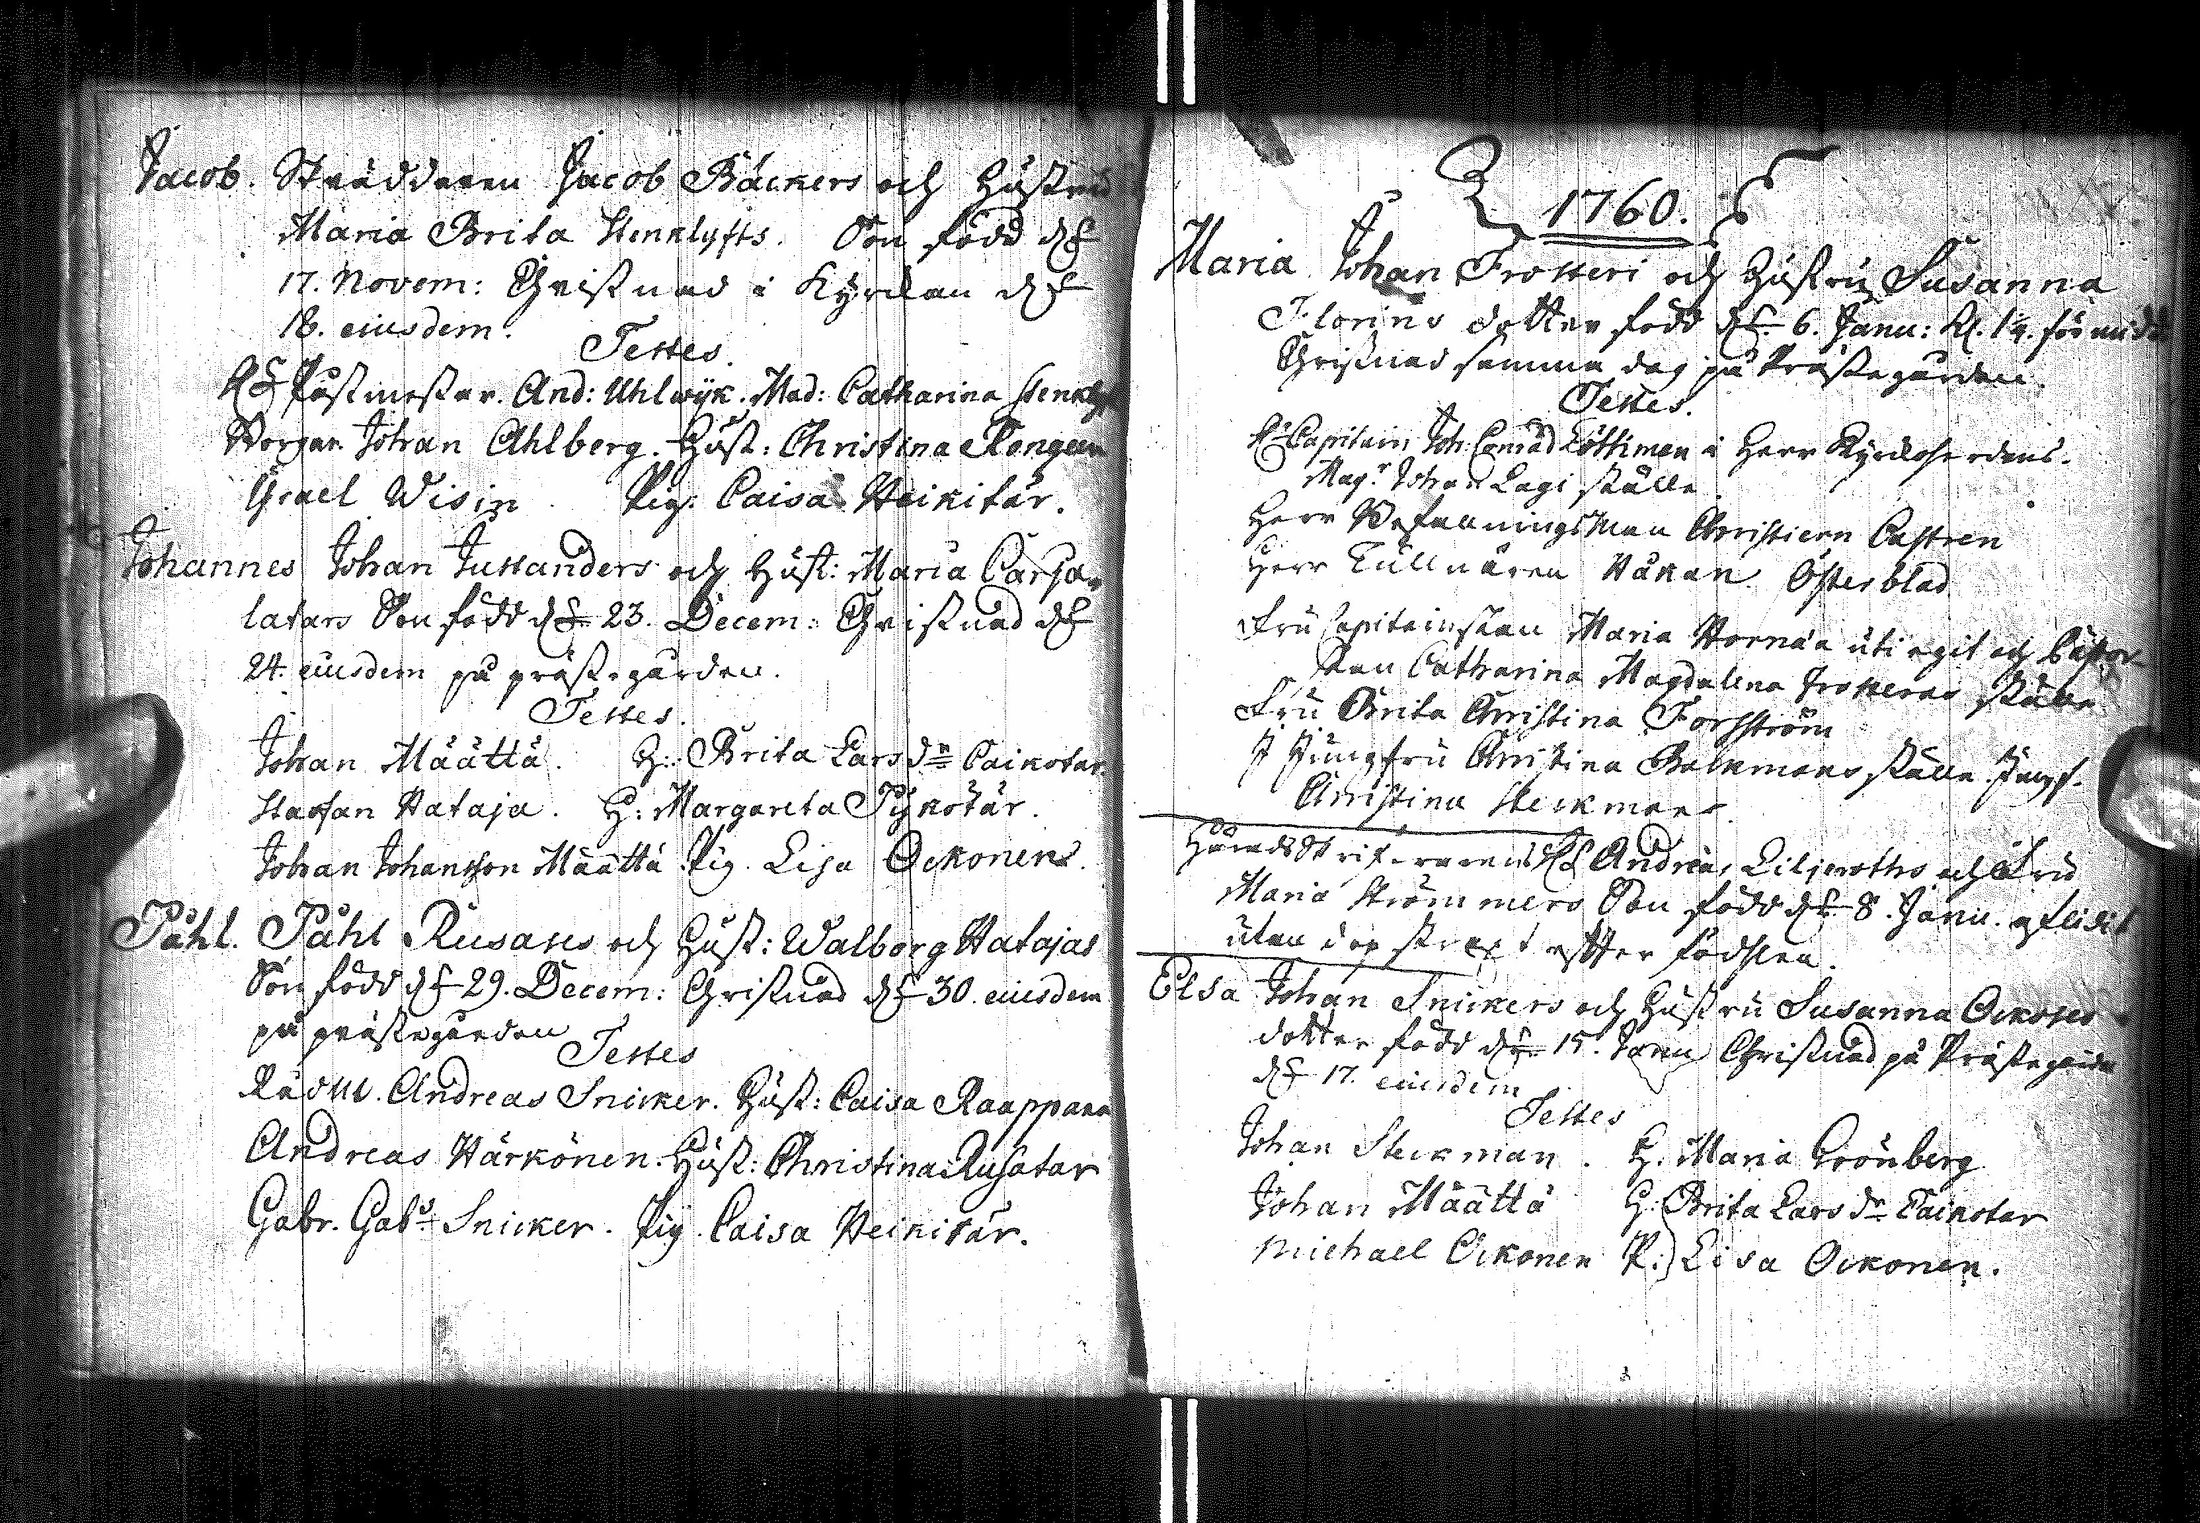 Jacob. Skräddaren Jacob Bäckers och Hustru
Maria Brita Stenklyfts. Son född d.
17. Novem: Christnad i Kyrckan d.
18. eiusdem.
Testes.
H. Påstmestar. And: Uhlwijk. Mad: Catharina Stenkly
Borgar. Johan Ahlberg. Hust: Christina
Israel Wisin. Pig. Caisa Heikitär.
Johannes Johan Jussanders och Hust: Maria Carja-
latars Son född d. 23. Decem: Christnad d.
24. eiusdem på prästegården.
Testes.
Johan Määttä. H: Brita Larsdr Caikotar.
Staffan Hataja. H: Margareta Pykötär.
Johan Johansson Määttä. Pig. Lisa Ockonens.
Påhl. Påhl Rusases och Hust: Walborg Hatajas
Son född d. 29. Decem: Christnad d. 30. eiusdem
på prästegården
Testes
Rådm. Andreas Snicker. Hust: Caisa Raappana
Andreas Härkönen. Hust: Christina Rusatar
Gabr. Gabs. Snicker. Pig. Caisa Heikitär.
1760.
Maria Johan Frosteri och Hustru Susanna
Florins dotter född d. 6. Janu: Kl. förmidd
Christnad samma dag på Prästegården.
Testes.
H. Capitain Joh. Conrad Löthman i Herr Kyrckoherdens.
Magr. Johan Lagi ställe
Herr Befallningsman Christiern Castren
Herr Tullnären Håkan Österblad
Fru Capitainskan Maria Hornæa uti egit och
Catharina Magdalena Frosterus ställe
Fru Brita Christina Forsström
I Jungfru Christina Backmans ställe Jungf.
Christina Steckmans.
Häradsskrifvarens H. Andreas Liljeroths och Fru
Maria Strömmers Son född d. 8. Janu. afledit
utan dop straxt effter födslen.
Elsa Johan Snickers och Hustru Susanna Ockoses
dotter född d. 15. Janu Christnad på Prästegården
d. 17. eiusdem
Testes
Johan Steckman. H. Maria Grönberg
Johan Määttä H: Brita Larsdr Caikotar
Michael Ockonen P: Lisa Ockonen.